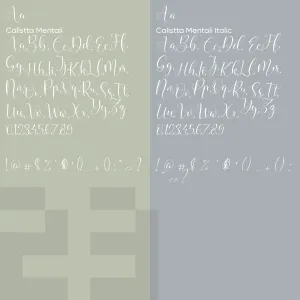 Aa
Calistta Mentali
Aa Bb Cc Dd Ee Ff
Gg Hh Ii Jj Kk Ll Mm
Nn Oo Pp Qq Rr Ss Tt
Uu Vv Ww Xx Yy Zz
0123456789
Aa
Calistta Mentali Italic
Aa Bb Cc Dd Ee Ff
Gg Hh Ii Jj Kk Ll Mm
Nn Oo Pp Qq Rr Ss Tt
Uu Vv Ww Xx Yy Zz
0123456789